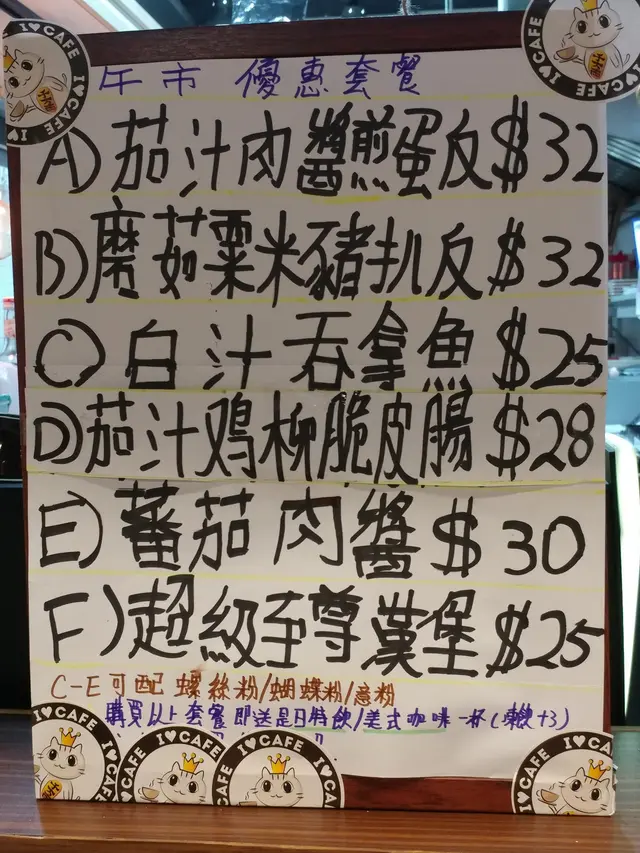 I♥CAFE
I♥CAFE
午市 優惠套餐
A) 茄汁肉醬煎蛋反 $32
B) 磨茹粟米豬扒反 $32
C) 白汁吞拿魚 $25
D) 茄汁鸡柳脆皮腸 $28
E) 蕃茄肉醬 $30
F) 超級至尊漢堡 $25
C-E可配 螺絲粉/蝴蝶粉/意粉
購買以上套餐即送是日特飲/美式咖啡一杯(凍飲+3)
I♥CAFE
I♥CAFE
I♥CAFE
I♥CAFE